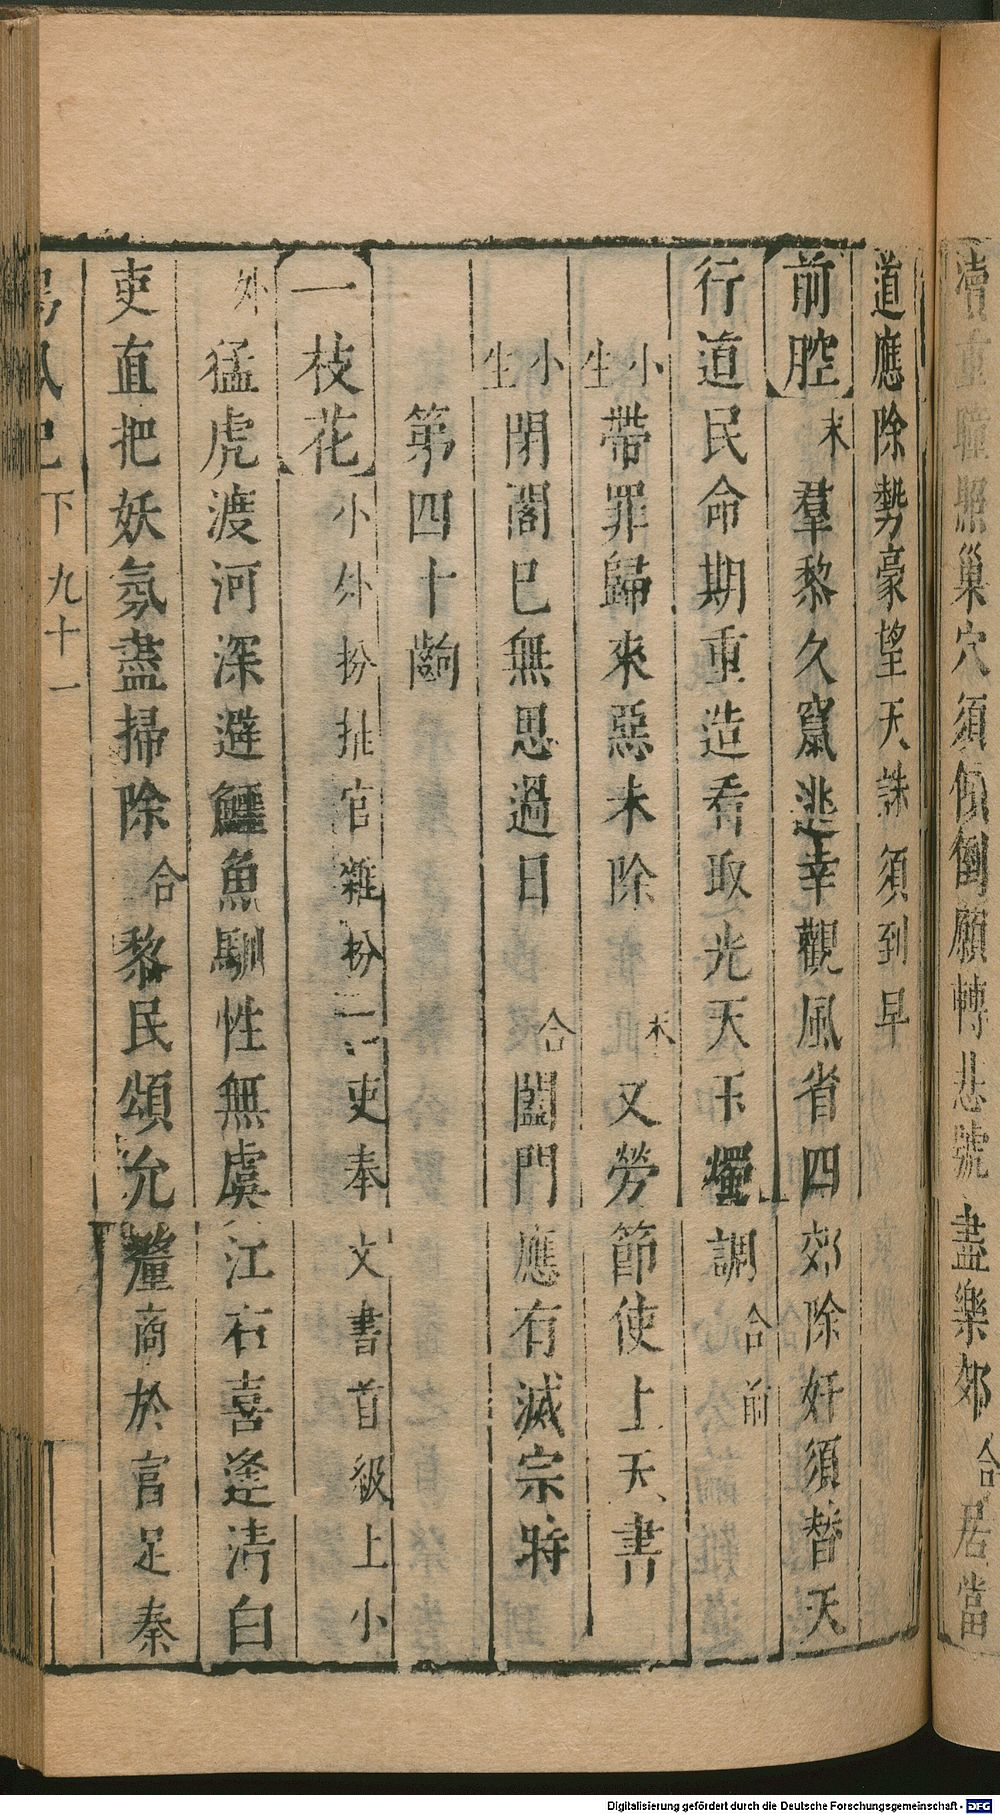 瀆重瞳照巢穴須傾倒願轉悲號盡樂郊合居當
道應除勢豪望天誅須到早
前腔末羣黎久竄逃幸觀風省四郊除奸須替天
行道民命期重造看取光天玉燭調合前
小生帶罪歸來惡未除末又勞節使上天書
小生閉閣已無思過日合闔門應有滅宗時
第四十齣
一枝花小外扮扯官雜扮二吏奉文書首級上小
外猛虎渡河深避鱷魚馴性無虞江右喜逢清白
吏直把妖氛盡掃除合黎民頌允釐商於富足秦
鳳記下九十一
Digitalisierung gefördert durch die Deutsche Forschungsgemeinschaft - DFG